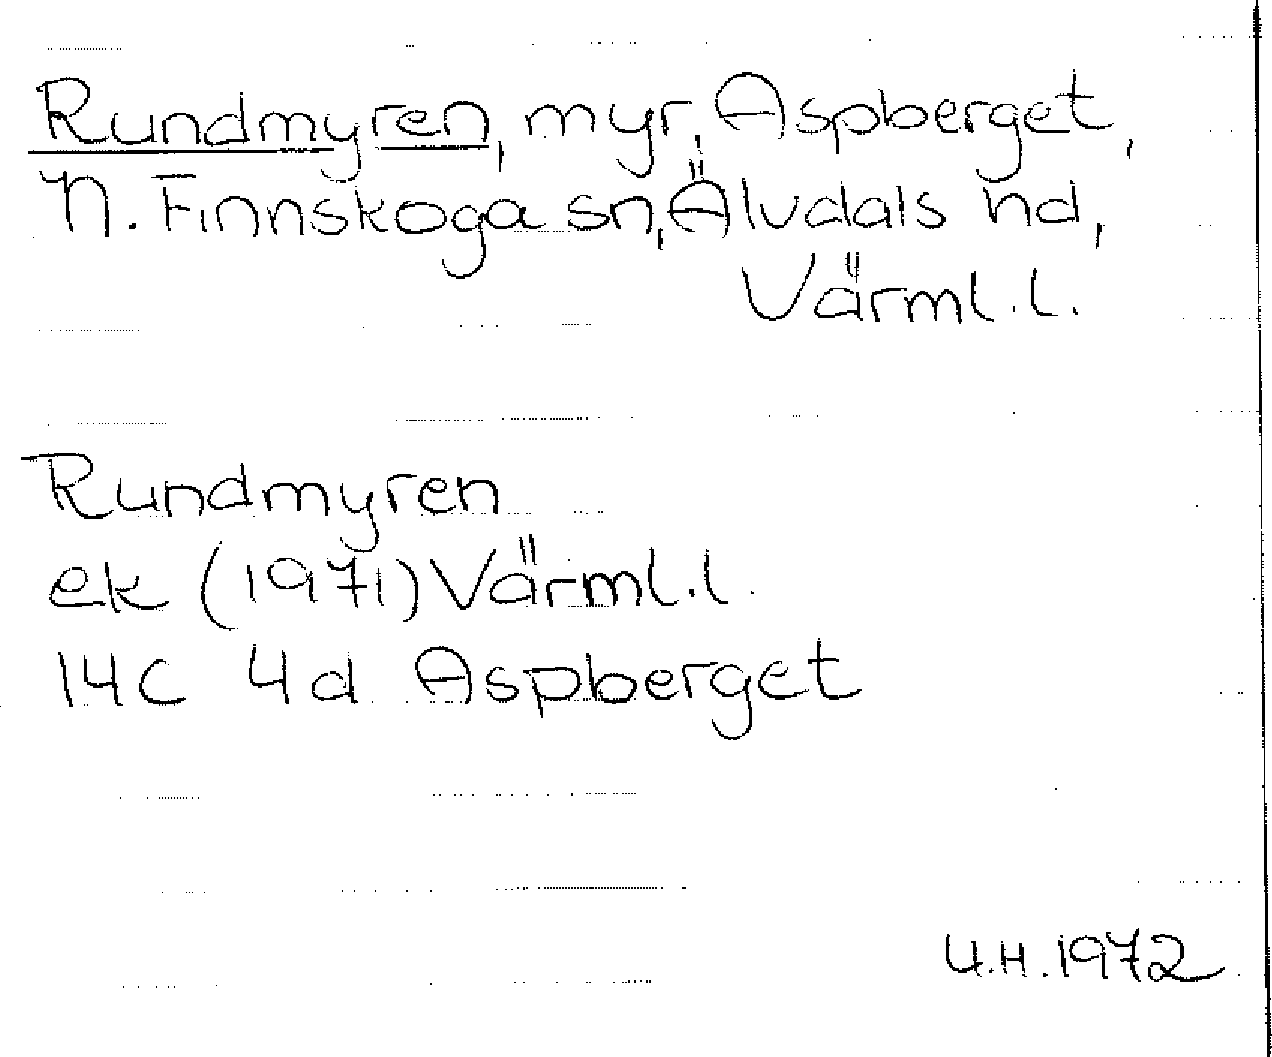 Rundmyren, myr, Aspberget,
N. Finnskoga sn, Älvdals hd,
Värml. l.
Rundmyren
ek (1971) Värml. l.
14C 4d Aspberget
U.H. 1972